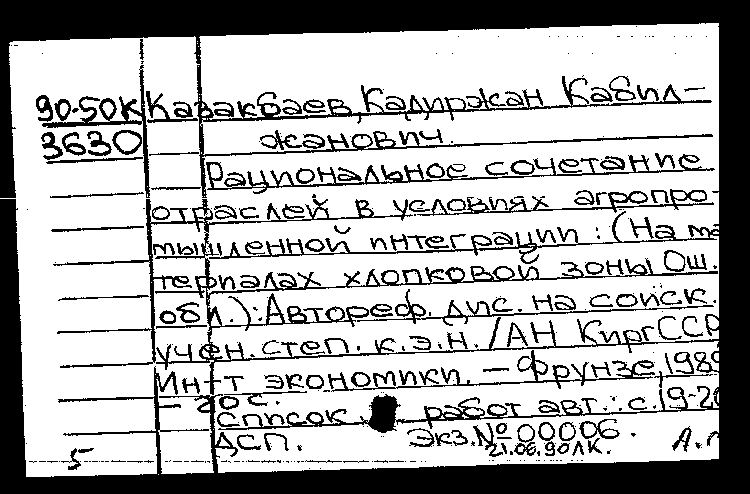 90-50К Казакбаев, Кадиржан Кабил-
3630 жанович.
Рациональное сочетание
отраслей в условиях агропро-
мышленной интеграции: (На ма
териалах хлопковой зоны Ош.
обл.): Автореф. дис. на соиск.
учен. степ. к.э.н. /АН КиргССР
Ин-т экономики. — Фрунзе, 1989
— 20 с.
Список работ авт.: с. 19-20
ДСП. Экз. № 00006.
5 21.06.90 ЛК.